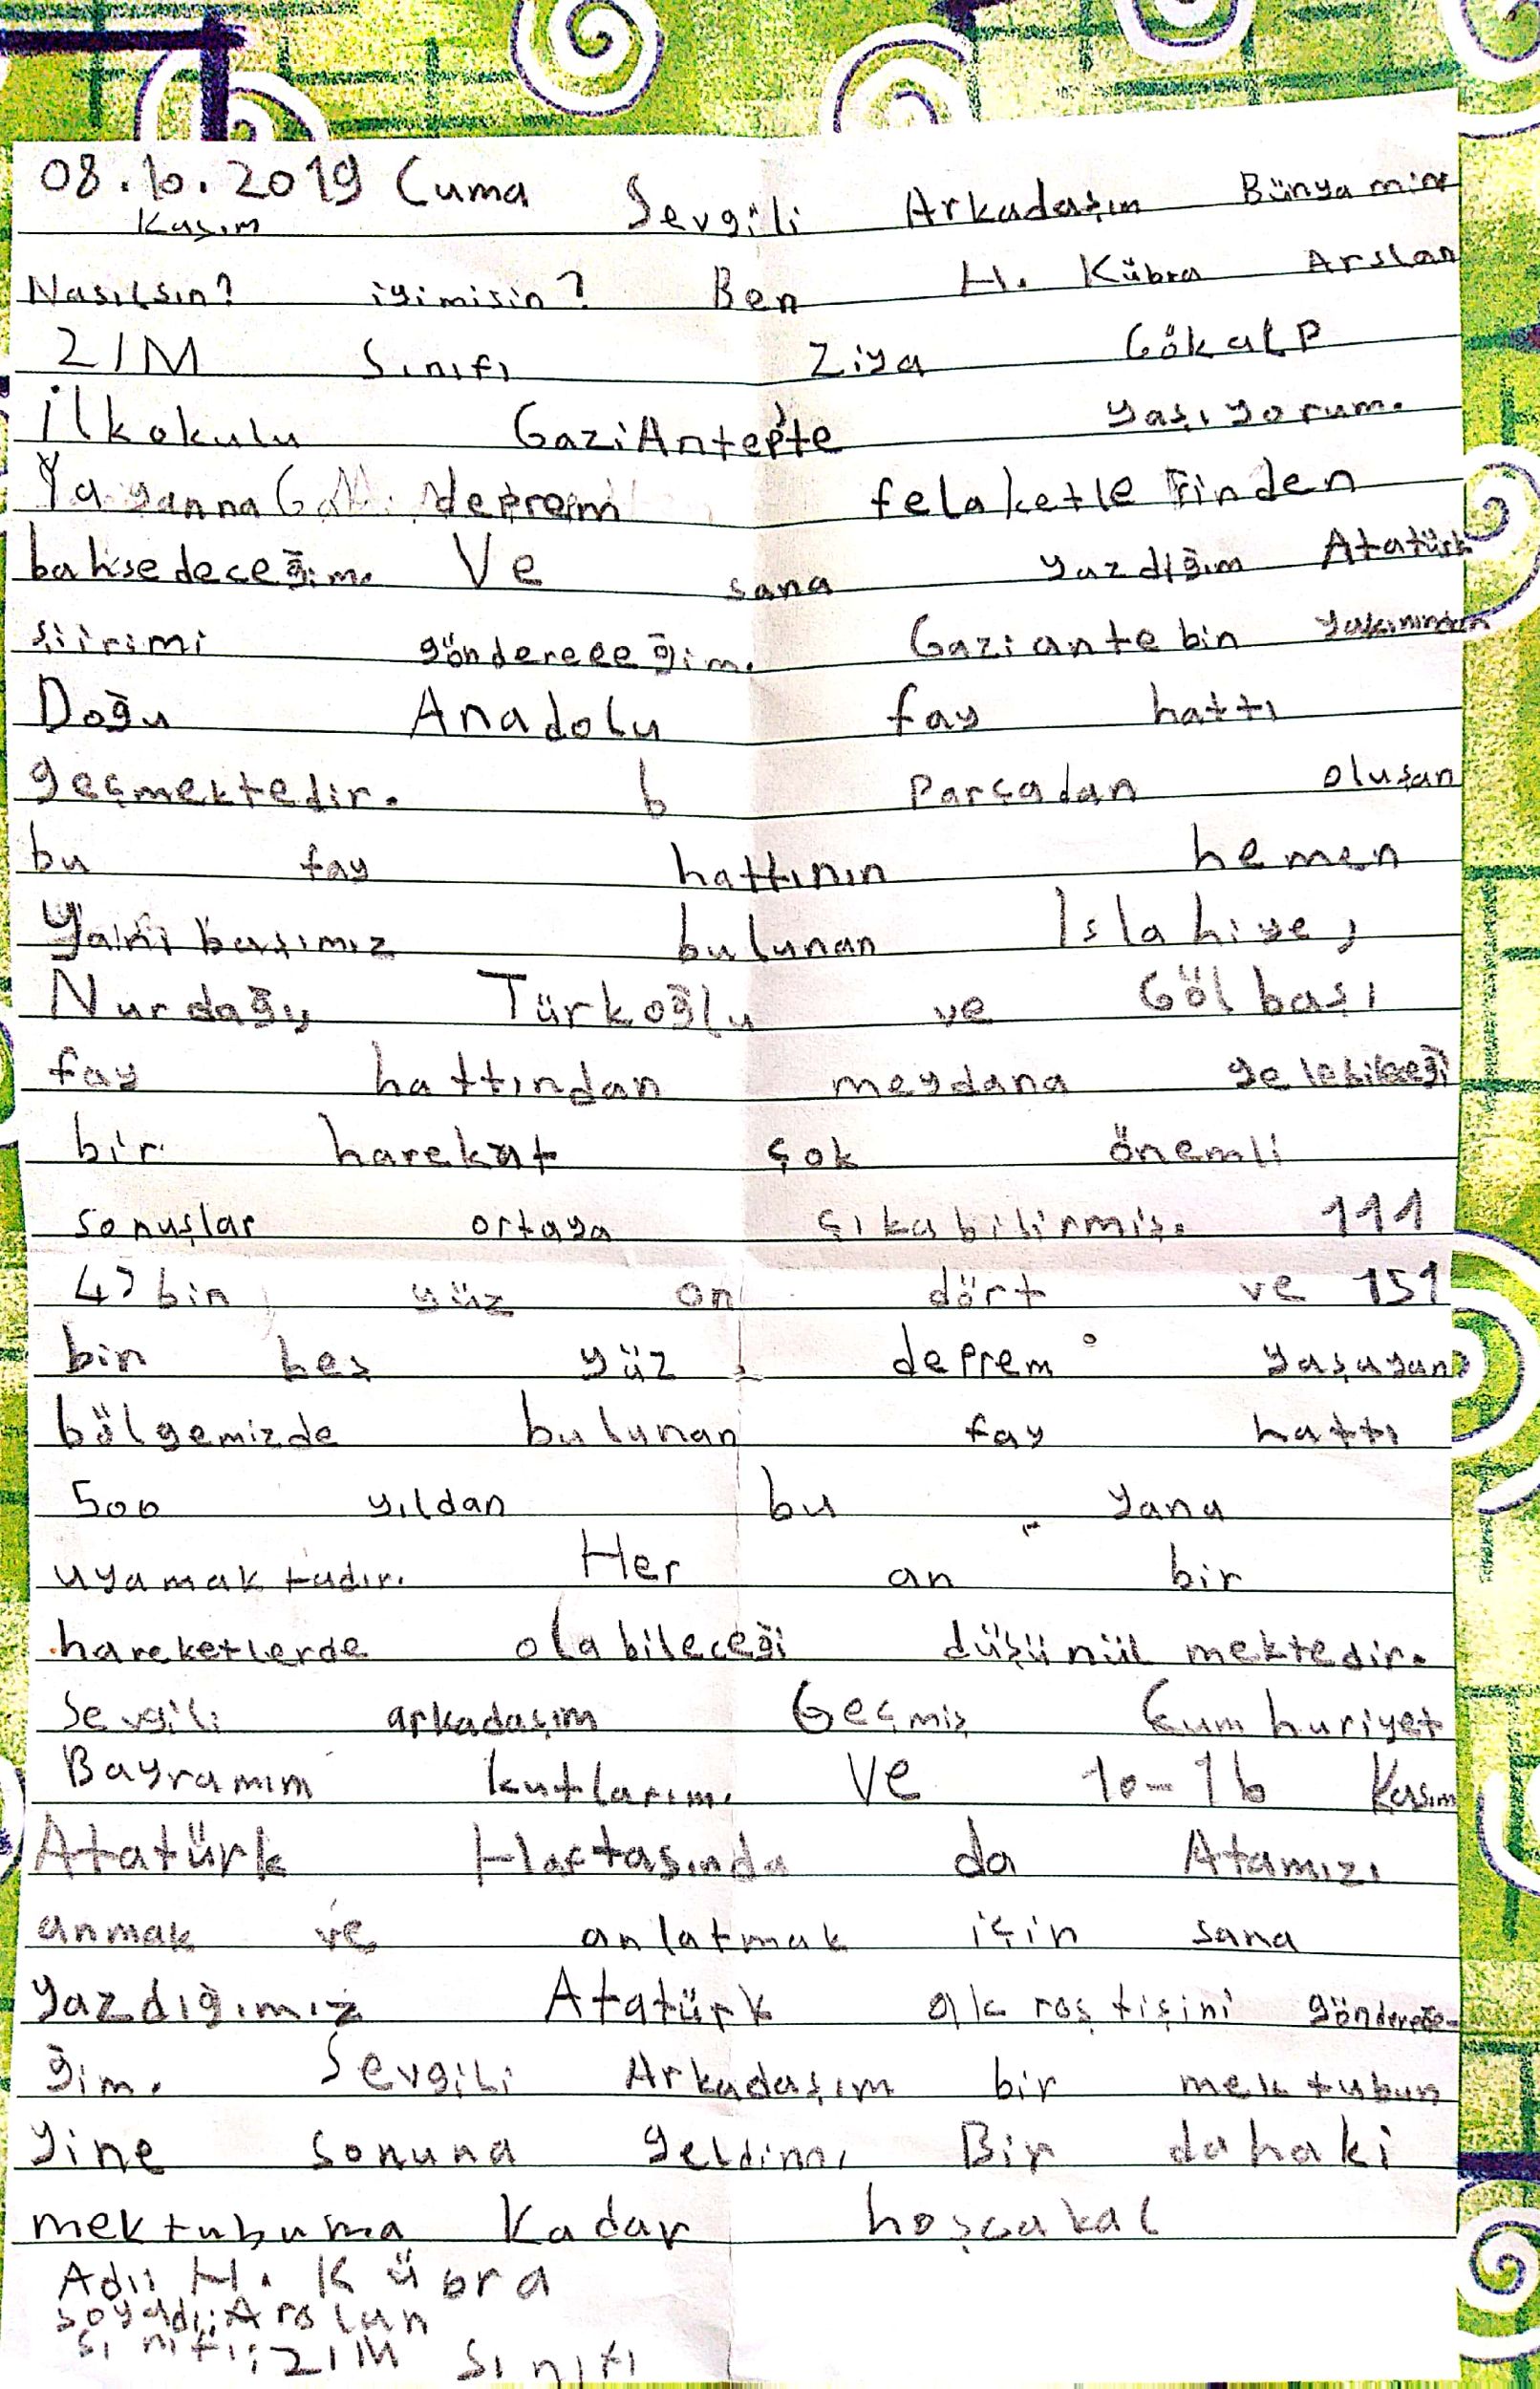 08.10.2019 Cuma Sevgili Arkadaşım Bünyamin
Kasım
Nasılsın? iyimisin? Ben H. Kübra Arslan
2/M Sınıfı Ziya Gökalp
İlkokulu GaziAntep'te yaşıyorum.
deprem felaketlerinden
bahsedeceğim. Ve sana yazdığım Atatürk
şiirimi göndereceğim. Gaziantebin yakınından
Doğu Anadolu fay hattı
geçmektedir. 6 Parçadan oluşan
bu fay hattının hemen
Yanıbaşımız bulunan Islahiye,
Nurdağı, Türkoğlu ve Gölbaşı
fay hattından meydana
bir harekat çok önemli
sonuşlar ortaya çıkabilirmiş. 111
bin yüz on dört ve 151
bin beş yüz deprem yaşayan
bölgemizde bulunan fay hattı
500 yıldan bu yana
uyamaktadır. Her an bir
hareketlerde olabileceği düşünülmektedir.
Sevgili arkadaşım Geçmiş Cumhuriyet
Bayramım kutlarım. Ve 10-16 Kasım
Atatürk Haftasında da Atamızı
anmak ve anlatmak için sana
Yazdığımız Atatürk akroştişini göndere-
ğim. Sevgili Arkadaşım bir mektubun
yine sonuna geldim. Bir dahaki
mektubuma Kadar hoşcakal
Adı: H. Kübra
soyadı: Arslan
sınıfı: 2/M Sınıfı